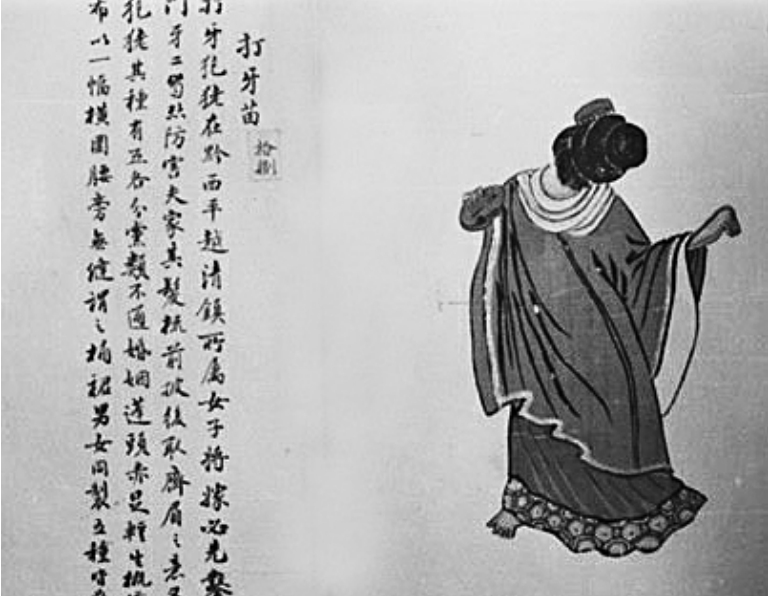 打牙苗
拾捌
打牙犵狫在黔西平越清鎮所属女子将嫁必先
門牙二防害夫家其髮梳前披後取齊眉之意
犵狫其種有五各分黨類不通婚姻蓬頭赤足輕生
布以一幅橫圍腰旁無縫謂之桶裙男女同製五種皆